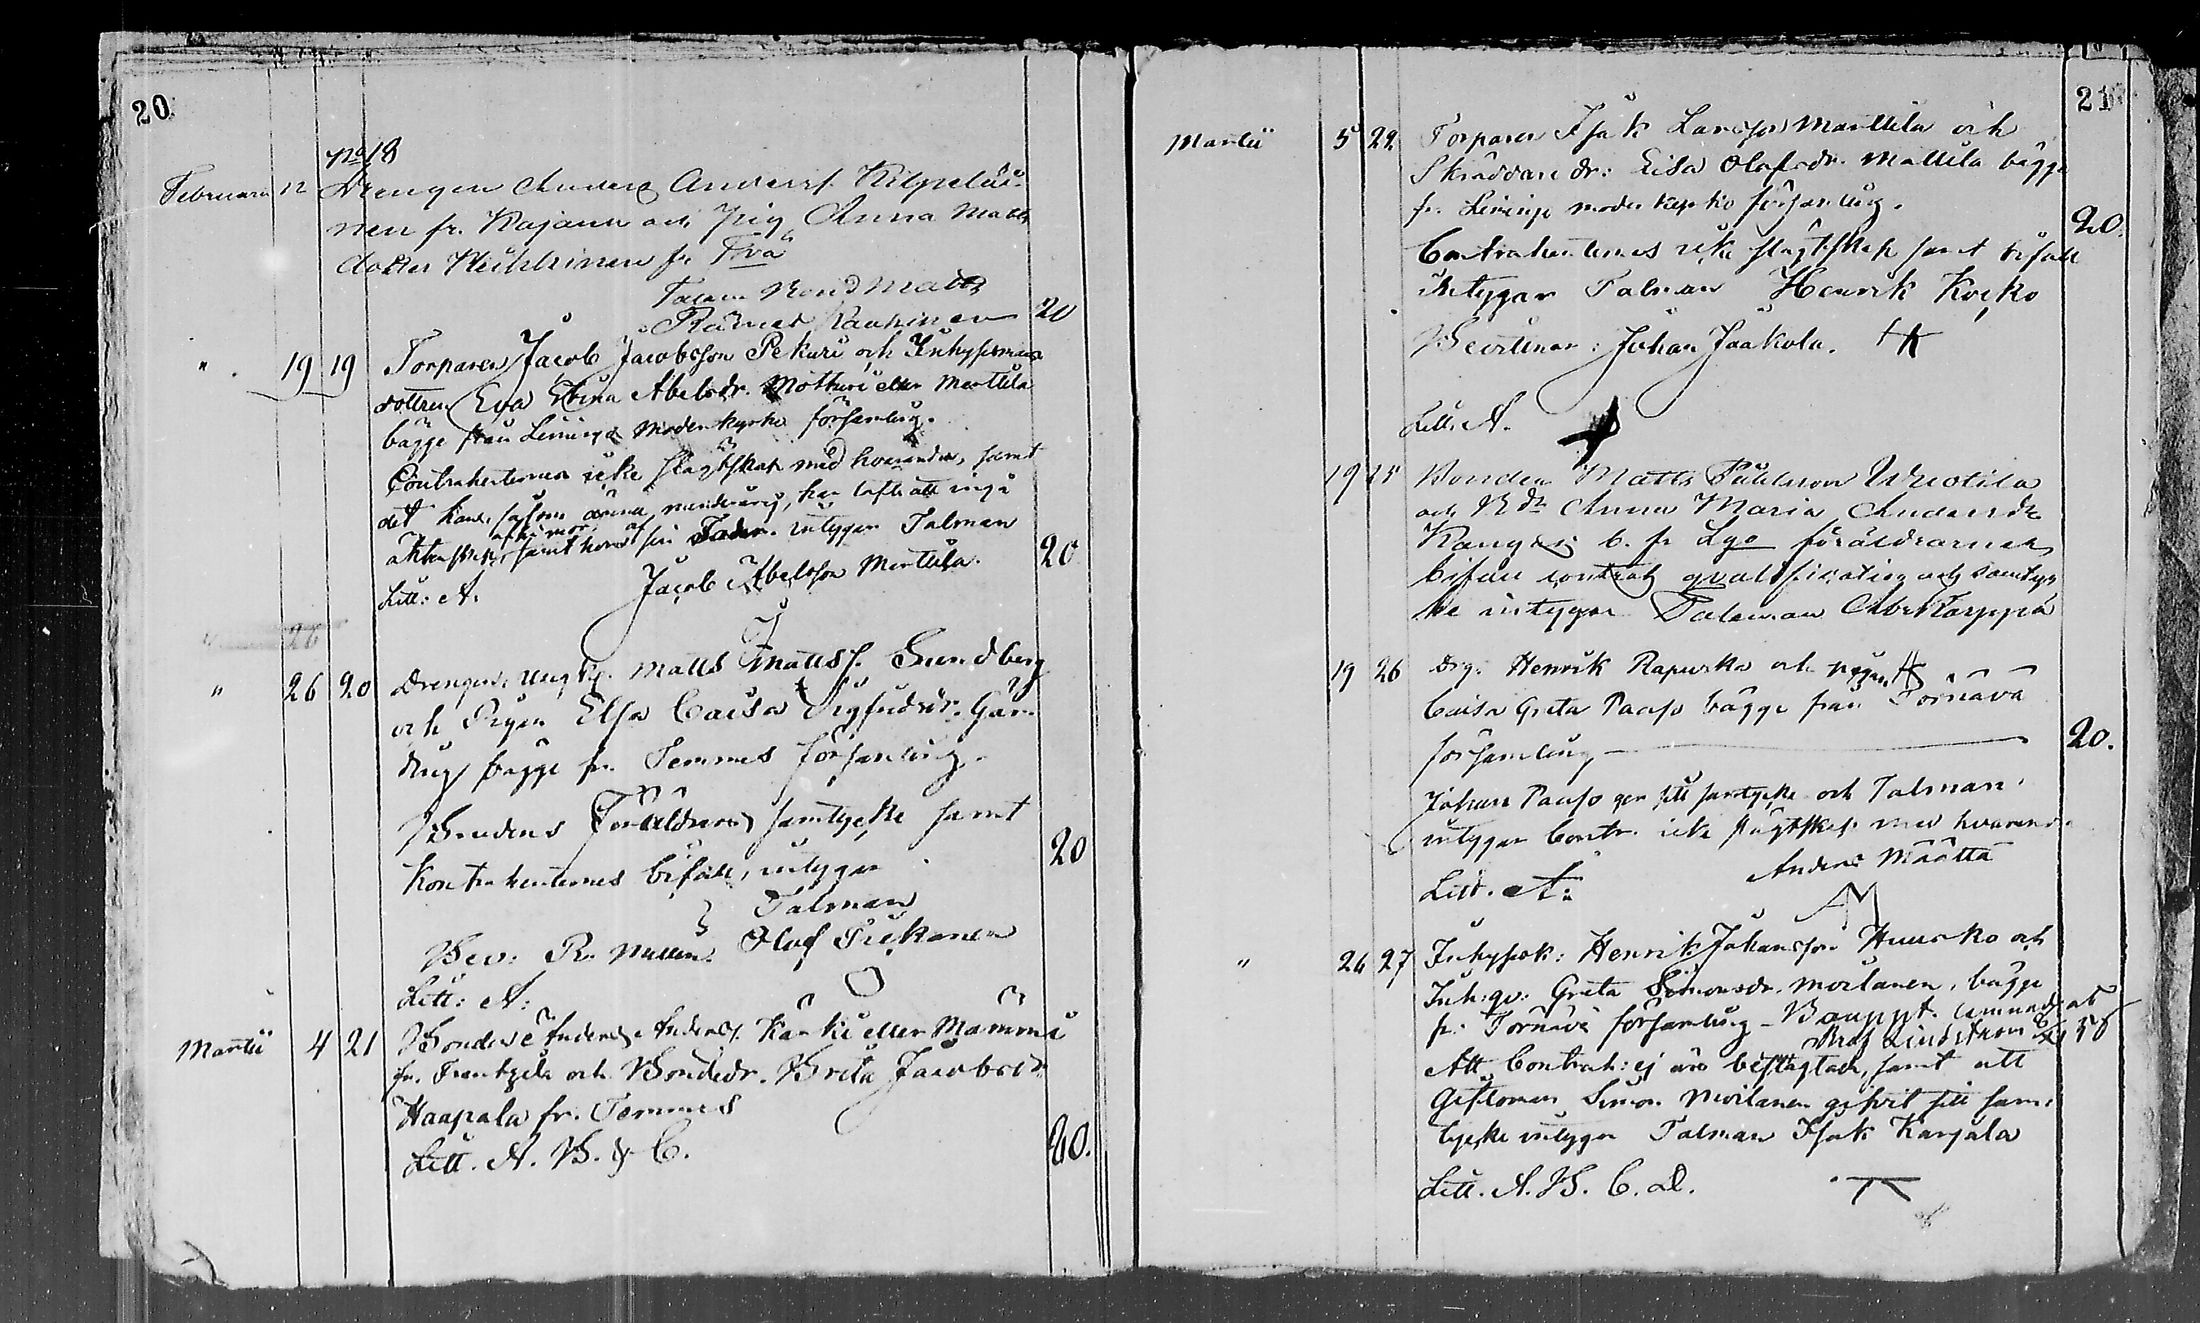 20
No 18
Februari 12 Drengen Anders Anderss. Kilpeläi-
nen fr. Kajana och Pig. Anna Matts
dotter Heikkinen fr.
Talman Matts
20
" 19 19 Torparen Jacob Jacobsson Pekuri och Inhysesmans
dottren Eva Abelsdr. eller Mertula
bägge från Limingo Moderkyrko församling.
Contrahenternes icke slägtskap med hvarandra, samt
det hon, såsom ännu minderårig, har lofts att ingå
äktenskap, samt af sin Fader. intygar Talman
Litt: A. Jacob Abelsson Mertula. 20
26
" 26 20 Drengen, Ungk. Matts Mattss. Sundberg
och Pigan Elsa Caisa Sigfridsdr.
bägge fr. Temmes församling.
Brudens Föräldrars samtycke samt
Kontrahenternes bifall, intygar 20
Talman
Bev: Olof Piekonen
Litt: A:
Martii 4 21 Bonden Anders Anderss. Kärki eller Mämmi
fr. Frantzila och Bondedr. Brita Jacobsdr.
Haapala fr. Temmes
Litt. A. B. & C. 20.
21
Martii 5 22 Torparen Isak Larsson Marttila och
Skräddare dr: Lisa Olofsdr. Mattila bägge
fr. Limingo moderkyrko församling.
20.
Contrahenternes icke slägtskap samt bifall
intygar Talman Henrik Kocko
Bevittnar: Johan Jaakola.
Litt. A.
19 25 Bonden Matts Wuotila
och Bdr Anna Maria Andersdr
Kangas b. fr. Lgo föräldrarnes
bifall contrah. qvalification och samtyc
ke intygar Talman Abel Torppa
19 26 Drg. Henrik Rapusko och pigan
Caisa Greta Paaso bägge från Törnävä
församling 20.
Johan Paaso ger sitt samtycke och Talman
intygar Contr. icke slägtskap med hvarand.
Anders Määttä
Litt. A:
" 26 27 Inhysesk: Henrik Johansson Huusko och
Inh.qv: Greta Simonsdr. Moilanen, bägge
fr. Törnävä församling -
Lindström 50
Att Contrah: ej äro beslägtade, samt att
Giftoman Simon Moilanen gifvit sitt sam-
tycke intygar Talman Isak Karjala
Litt. A. B. C. D.